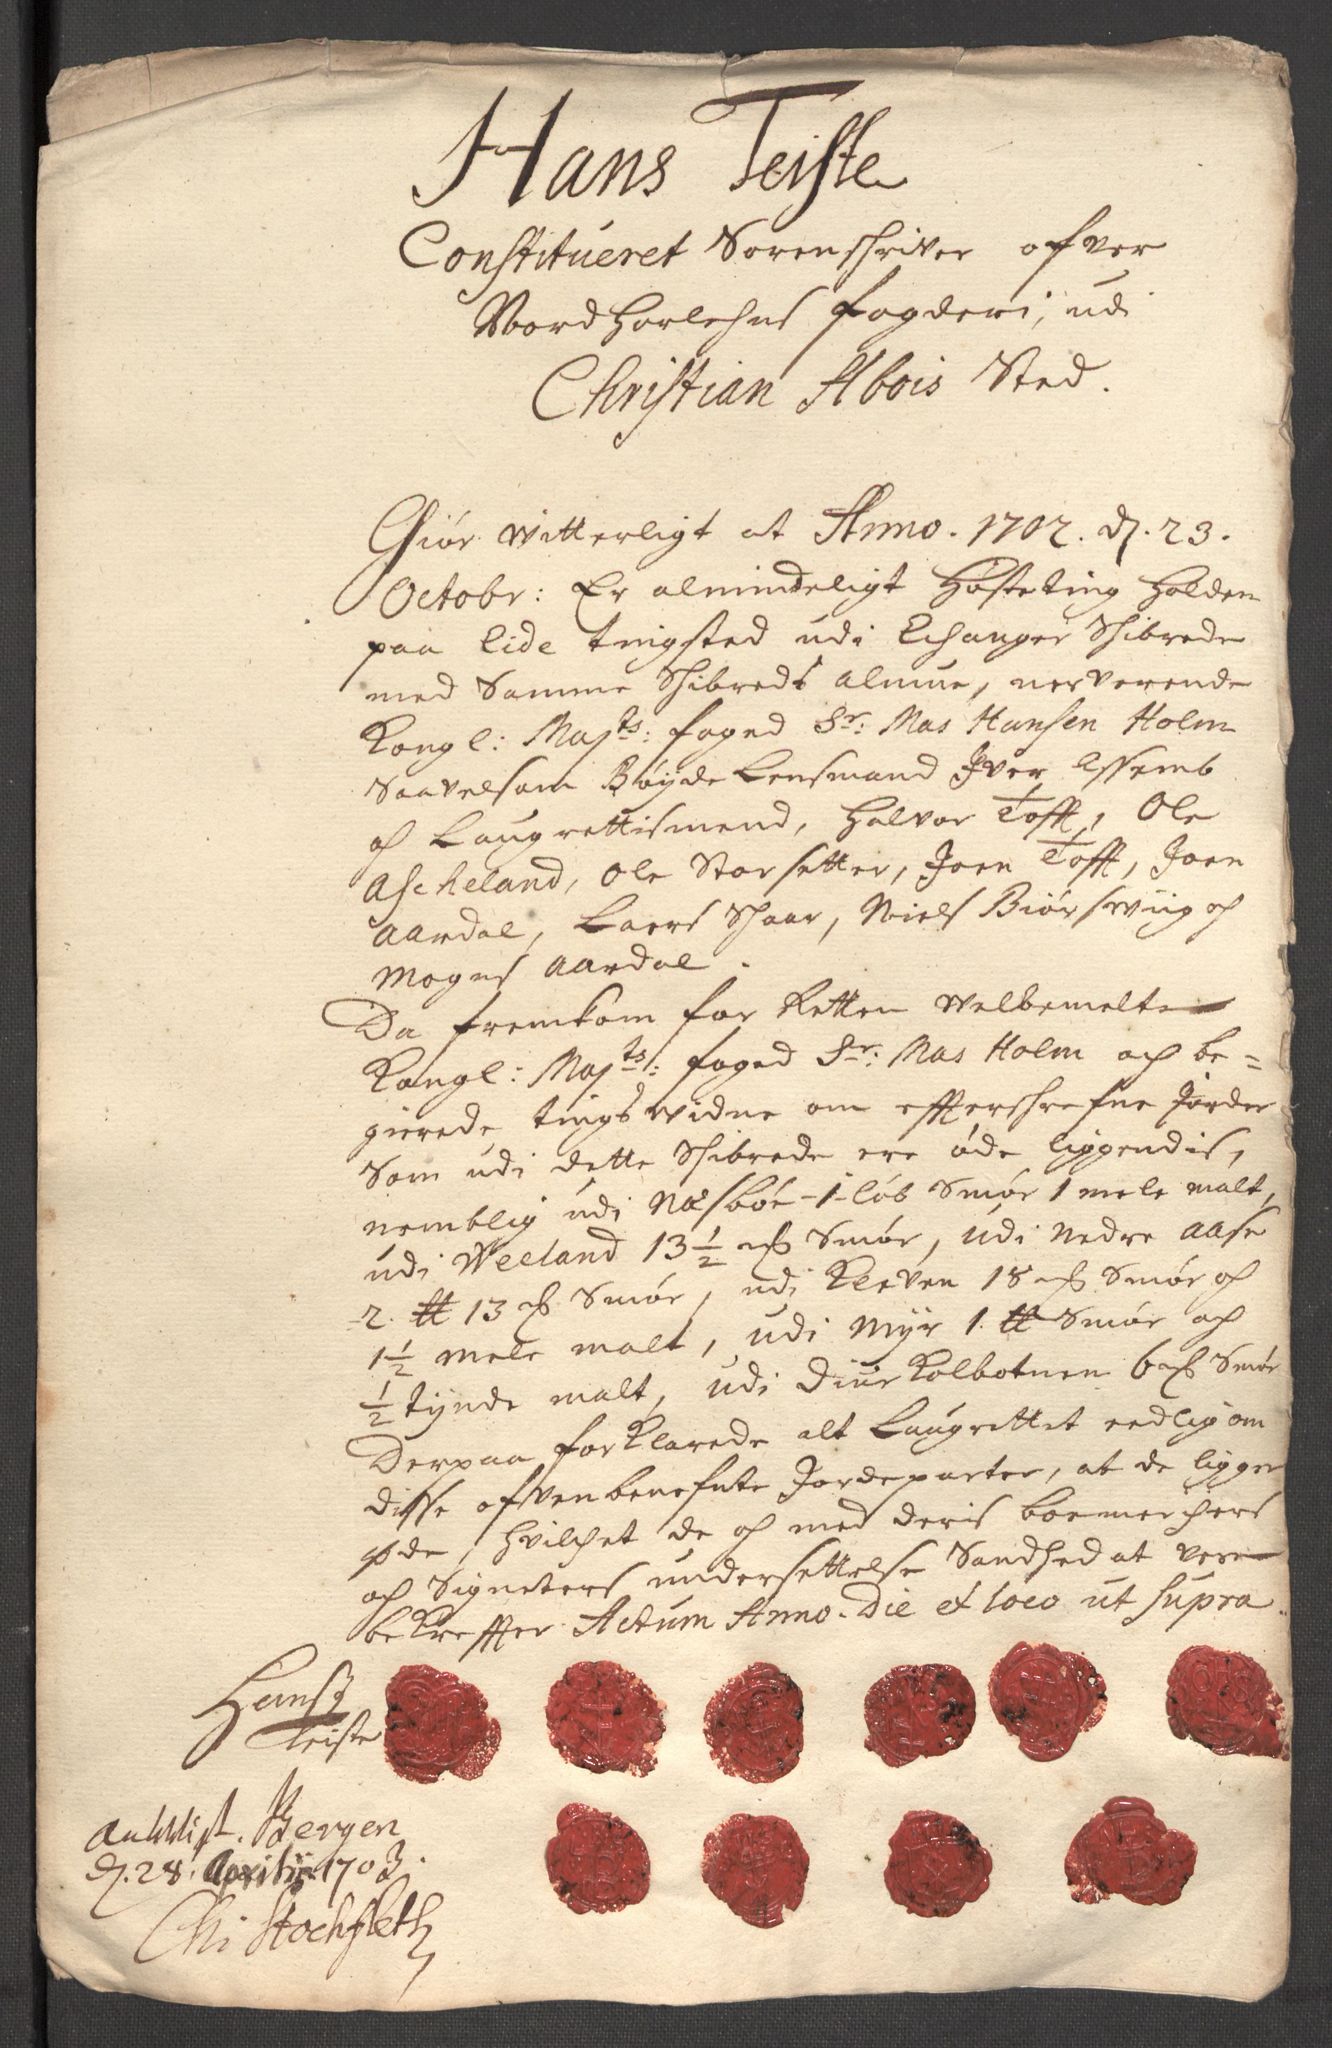 Hans Teiste
Constitueret Sorenschriver ofver
Nordhorlehns fogderi, udi
Christian Abois Sted.
Giør vitterligt at Anno. 1702. d. 23.
Octobr: Er almindeligt Høsteting holden
paa Eide tingsted udi Echanger Schibrede
med Samme Schibreds almue, nerverende
Kongl: Maj:ts: foged Sr: Mas Hansen Holm
Saavelsom Bøyde Lensmand Iver
och Laugrettismend, Halvor Toff, Ole
Ascheland, Ole Storsetter, Joen Toff, Joen
Aardal, Laers Schaar, Niels Biørswiig och
Mogns Aardal.
Da fremkom for Retten welbemelte
Kongl: Maj:ts: foged Sr: Mas Holm och be=
gierede tingswidne om effterschrefne Jorder
Som udi dette Schibrede ere øde liggendis,
nemblig udi Næsbøe - 1 - løb Smør 1 mele malt,
udi Weeland 13 1/2 mk Smør, udi Nedre Aase
2. ℔ 13 mk Smør, udi Kleven 18 mk Smør och
1 1/2 mele malt, udi Myr 1. ℔ Smør och
1/2 tynde malt, udi Diurkolbotnen 6 mk Smør
Derpaa forklarede alt Laugrettet eedlig om
disse ofvenbenefnte Jordeparter, at de ligger
øde, hvilchet de och med deris boemercher
och Signeters undersettelse Sandhed at vere
bekreffter Actum Anno. Die et loco ut supra.
Hans
Teiste
Bergen
d. 28. Aprilij 1703.
Chr Stochfleth